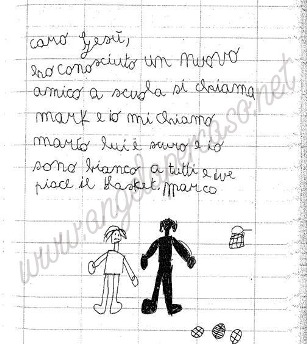 caro Gesù,
ho conosciuto un nuovo
amico a scuola si chiama
mark e io mi chiamo
marco lui è scuro e io
sono bianco a tutti e due
piace il basket. marco
www.angeloperciso.net